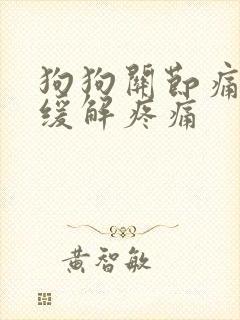 狗狗關節痛
缓解疼痛
黄智敏